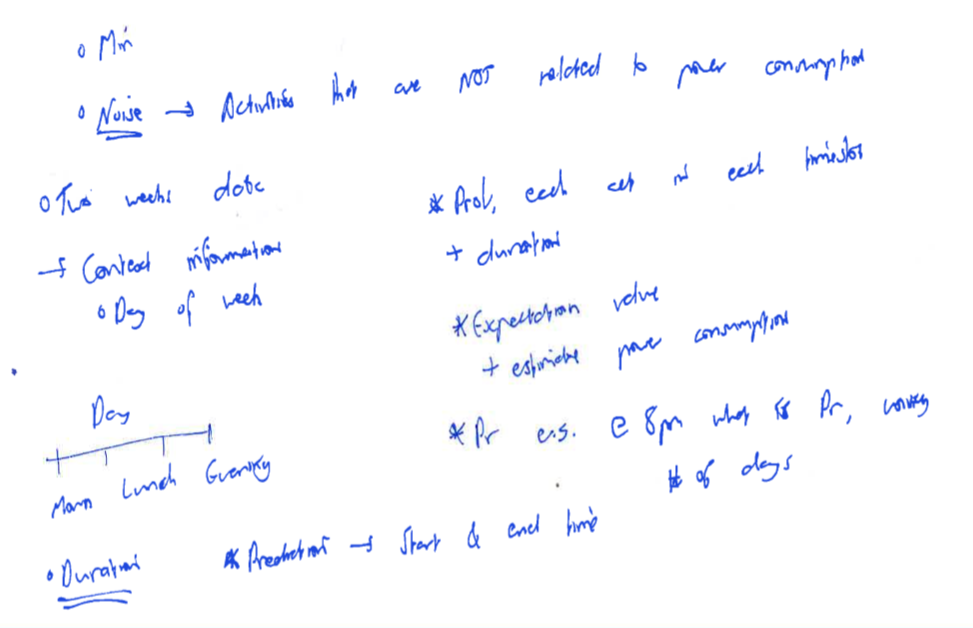 o Min
o Noise → Activities that are NOT related to power consumption
o Two weeks data
→ Context information
o Day of week
Day
Morn Lunch Evening
• Duration
* Prob, each act in each timeslot
+ duration
* Expectation value
+ estimate power consumption
* Pr e.g. @ 8pm what is Pr,
# of days
* Prediction → Start & end time